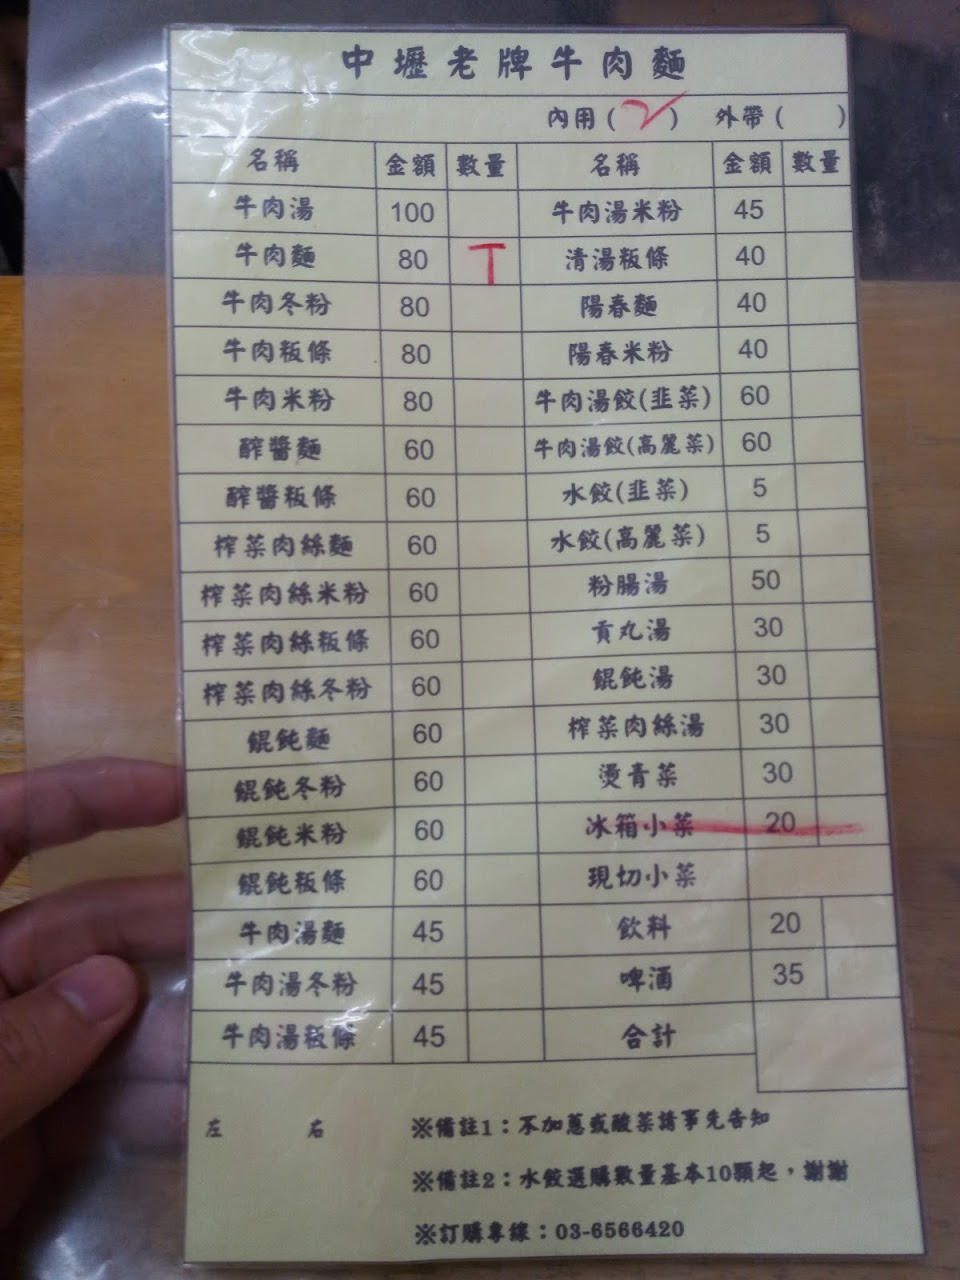 中壢老牌牛肉麵
內用( ) 外帶( )
名稱 金額 數量 名稱 金額 數量
牛肉湯 100 牛肉湯米粉 45
牛肉麵 80 清湯粄條 40
牛肉冬粉 80 陽春麵 40
牛肉粄條 80 陽春米粉 40
牛肉米粉 80 牛肉湯餃(韭菜) 60
醡醬麵 60 牛肉湯餃(高麗菜) 60
醡醬粄條 60 水餃(韭菜) 5
榨菜肉絲麵 60 水餃(高麗菜) 5
榨菜肉絲米粉 60 粉腸湯 50
榨菜肉絲粄條 60 貢丸湯 30
榨菜肉絲冬粉 60 餛飩湯 30
餛飩麵 60 榨菜肉絲湯 30
餛飩冬粉 60 燙青菜 30
餛飩米粉 60 冰箱小菜 20
餛飩粄條 60 現切小菜
牛肉湯麵 45 飲料 20
牛肉湯冬粉 45 啤酒 35
牛肉湯粄條 45 合計
左 右 ※備註1：不加蔥或酸菜請事先告知
※備註2：水餃選購數量基本10顆起，謝謝
※訂購專線：03-6566420